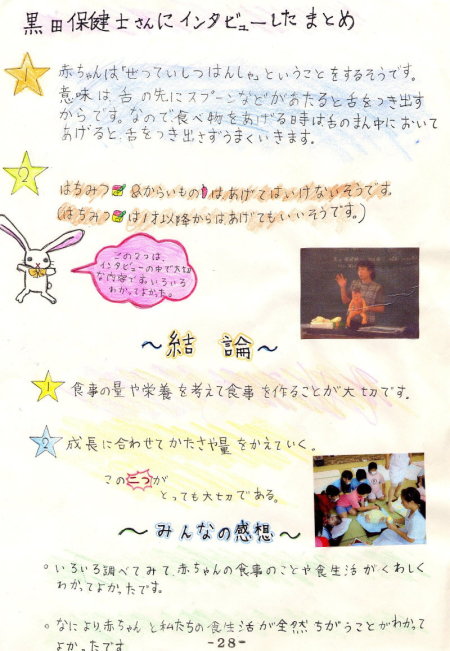 黒田保健士さんにインタビューしたまとめ
1
赤ちゃんは「ぜっていしつはんしゃ」ということをするそうです。
意味は舌の先にスプーンなどがあたると舌をつき出す
からです。なので、食べ物をあげる時は舌のまん中において
あげると、舌をつき出さずうまくいきます。
2
はちみつ&からいものはあげてはいけないそうです。
(はちみつは1才以降からはあげてもいいそうです。)
この2つは、
インタビューの中で大切
な内容でいろいろ
わかってよかった。
～結論～
1 食事の量や栄養を考えて食事を作ることが大切です。
2 成長に合わせてかたさや量をかえていく。
この二つが
とっても大切である。
～みんなの感想～
○いろいろ調べてみて、赤ちゃんの食事のことや食生活がくわしく
わかってよかったです。
○なにより赤ちゃんと私たちの食生活が全然ちがうことがわかって
よかったです
-28-